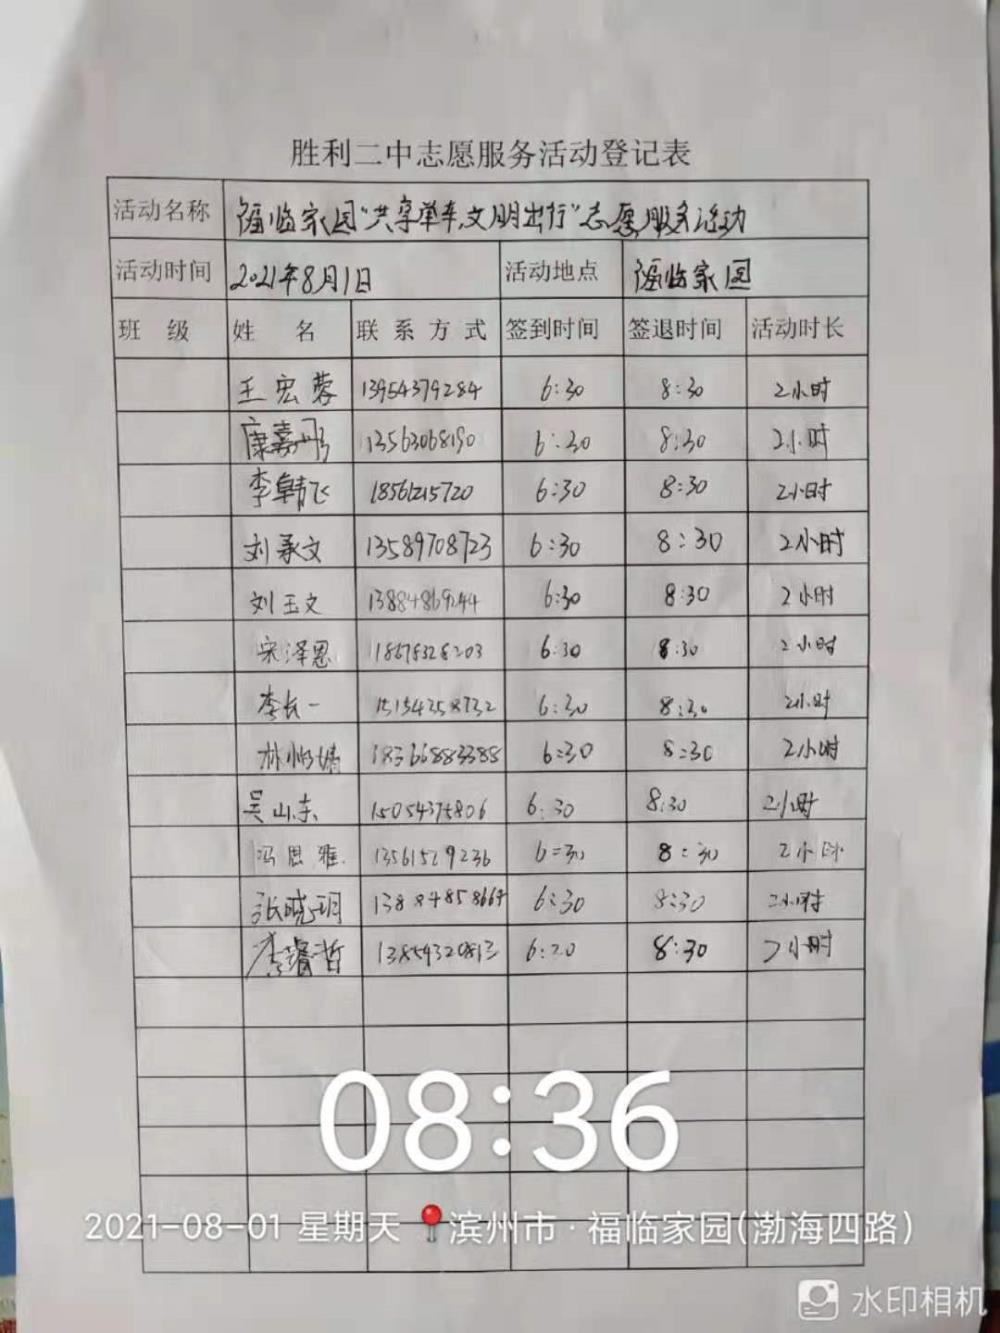 胜利二中志愿服务活动登记表
活动名称 福临家园“共享单车,文明出行”志愿服务活动
活动时间 2021年8月1日 活动地点 福临家园
班 级 姓 名 联 系 方 式 签到时间 签退时间 活动时长
王宏蓉 13954379284 6:30 8:30 2小时
康嘉彤 13563068190 6:30 8:30 2小时
李 飞 18561215720 6:30 8:30 2小时
刘承文 13589708723 6:30 8:30 2小时
刘玉文 13884869244 6:30 8:30 2小时
宋泽恩 6:30 8:30 2小时
李长一 15154258732 6:30 8:30 2小时
林 18366883388 6:30 8:30 2小时
吴山东 15054375806 6:30 8:30 2小时
冯思雅 13561529236 6:30 8:30 2小时
张晓玥 13884858664 6:30 8:30 2小时
李睿哲 13854320813 6:20 8:30 2小时
08:36
2021-08-01 星期天 滨州市·福临家园(渤海四路)
水印相机